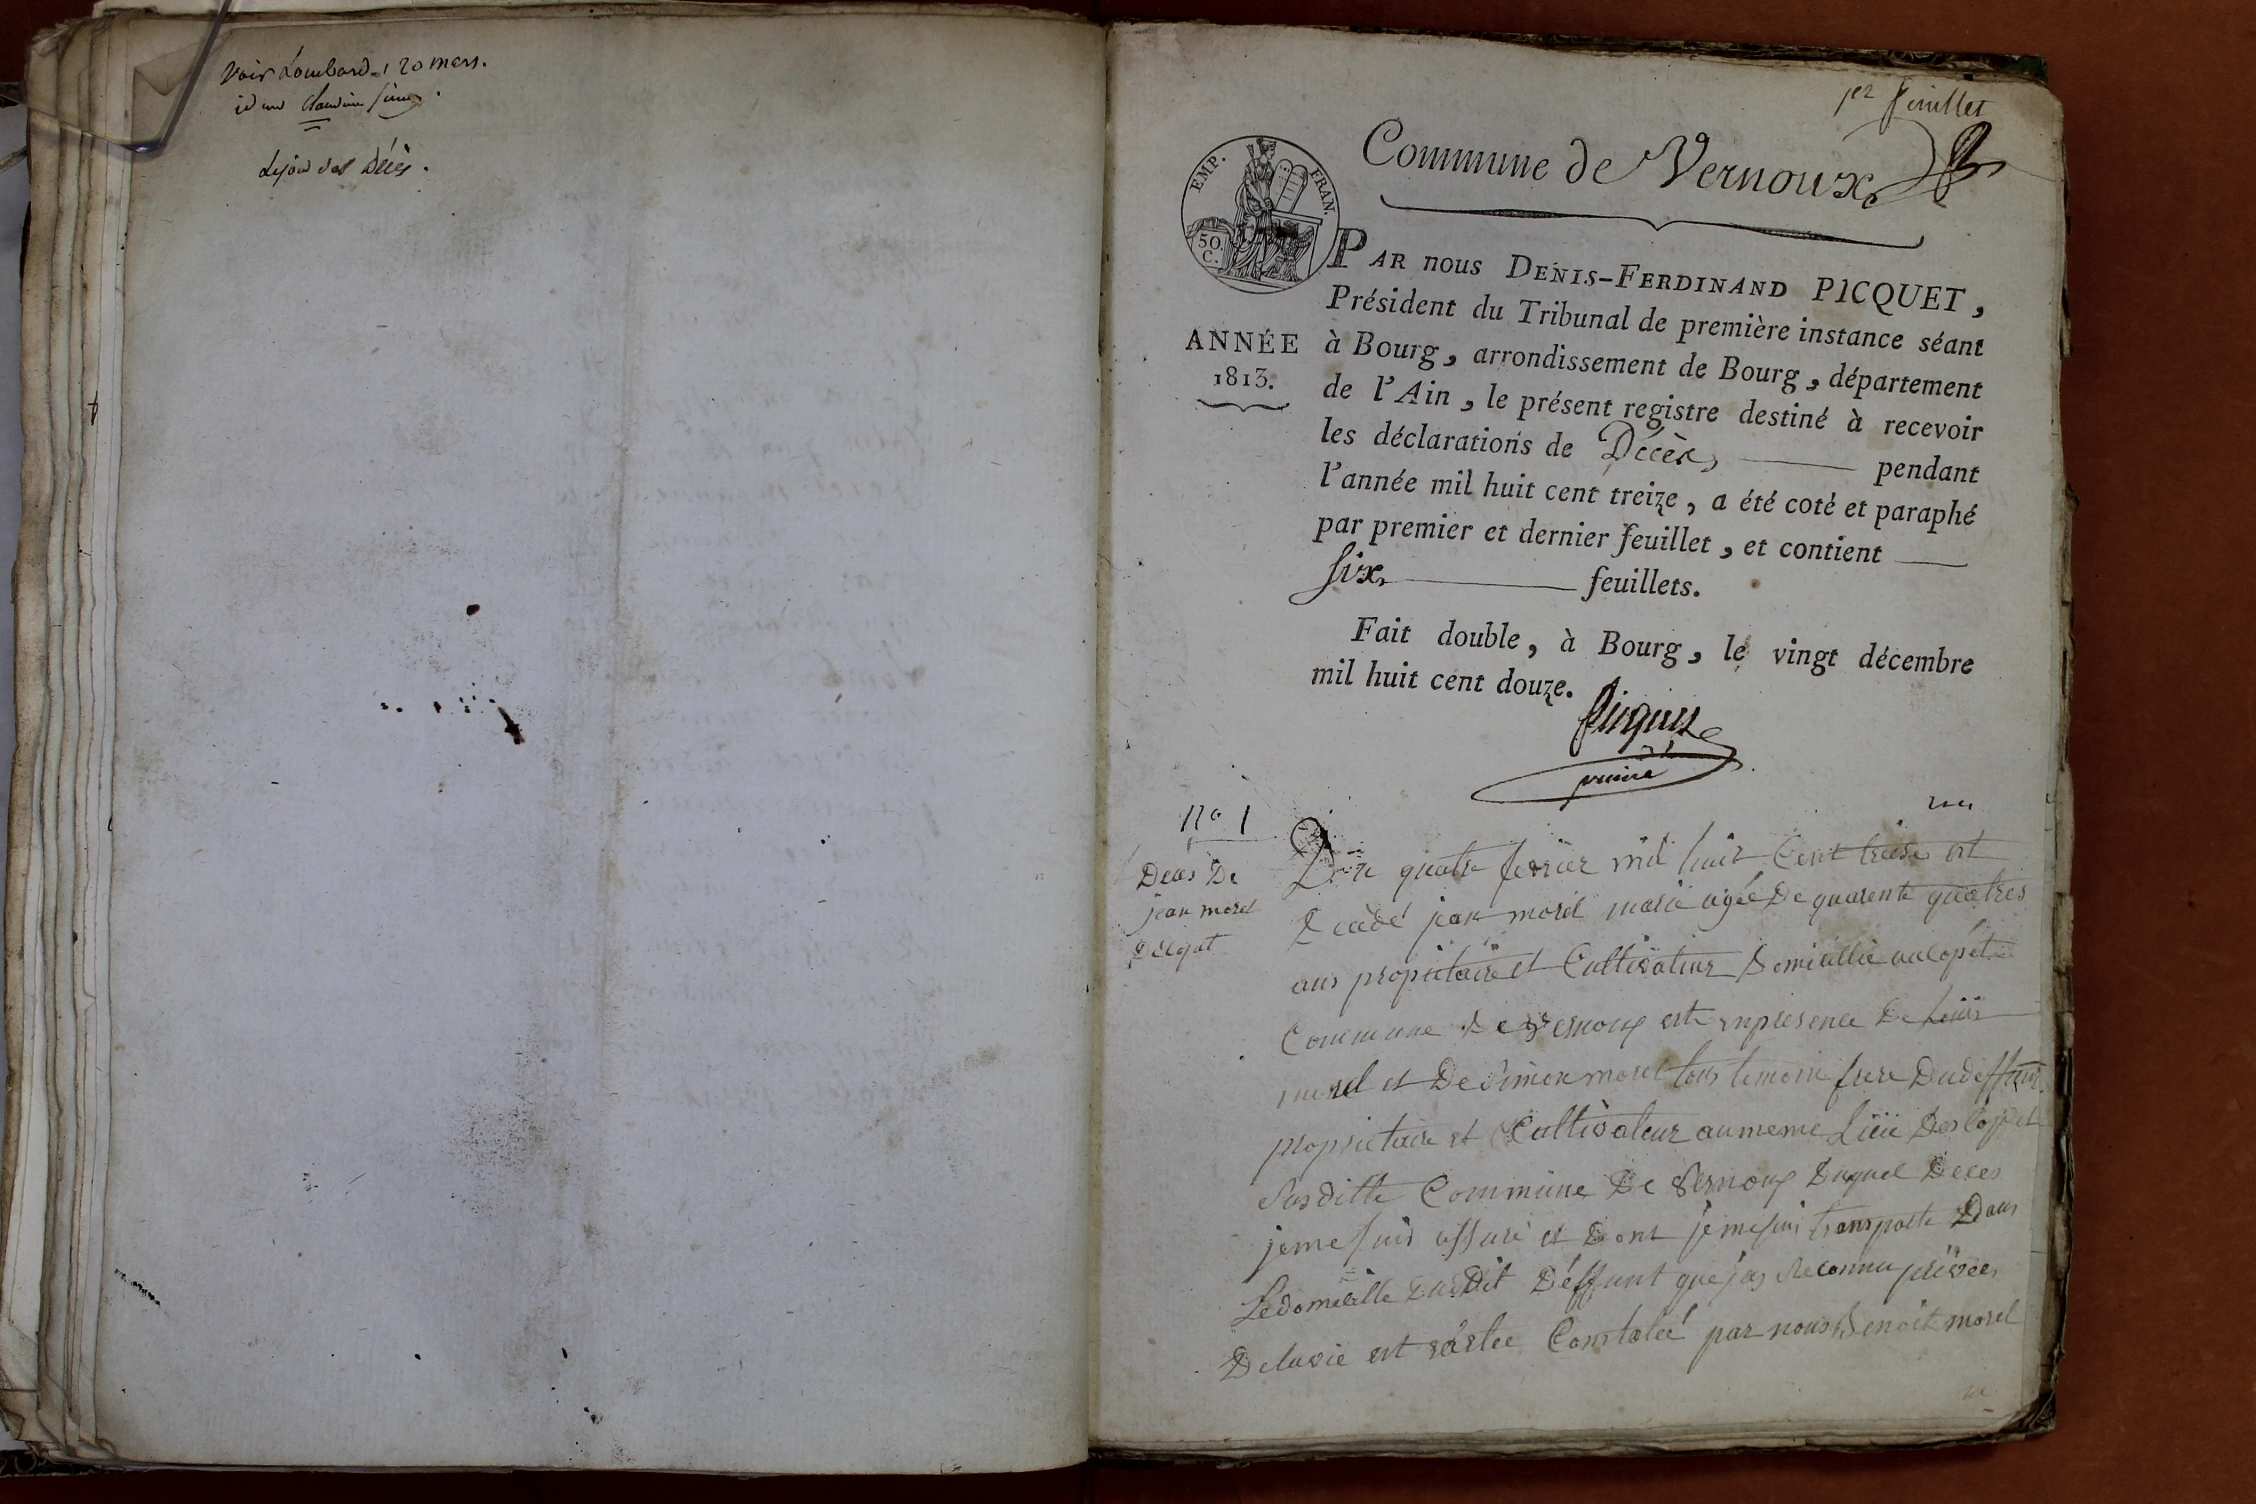 voir Lombard 20 mars.
idem Claudine
le jour des Décès.
1er feuillet
Commune de Vernoux
EMP. FRAN.
50.
C.
PAR nous DENIS-FERDINAND PICQUET,
Président du Tribunal de première instance séant
ANNÉE
1813.
à Bourg, arrondissement de Bourg, département
de l'Ain, le présent registre destiné à recevoir
les déclarations de Décès pendant
l'année mil huit cent treize, a été coté et paraphé
par premier et dernier feuillet, et contient
six feuillets.
Fait double, à Bourg, le vingt décembre
mil huit cent douze.
Picquet
No 1
Deces De
jean morel
quatre fevrier mil huit Cent treise est
Decedé jean morel marié agée De quarente quatres
ans propietaire et Cultivateur Domicillié
Commune De Vernoux est enpresence De Louis
morel et De Simon morel tous temoin frere Dudeffunt
proprietaire et Cultivateur aumeme Lieu
Susditte Commune De Vernoux Duquel Deces
jeme suis assuré et Dont jeme suis transporté Dans
Ledomicille Dudit Deffunt que jay Reconnu privées
Delavie est Constaleé par nous Benoit morel